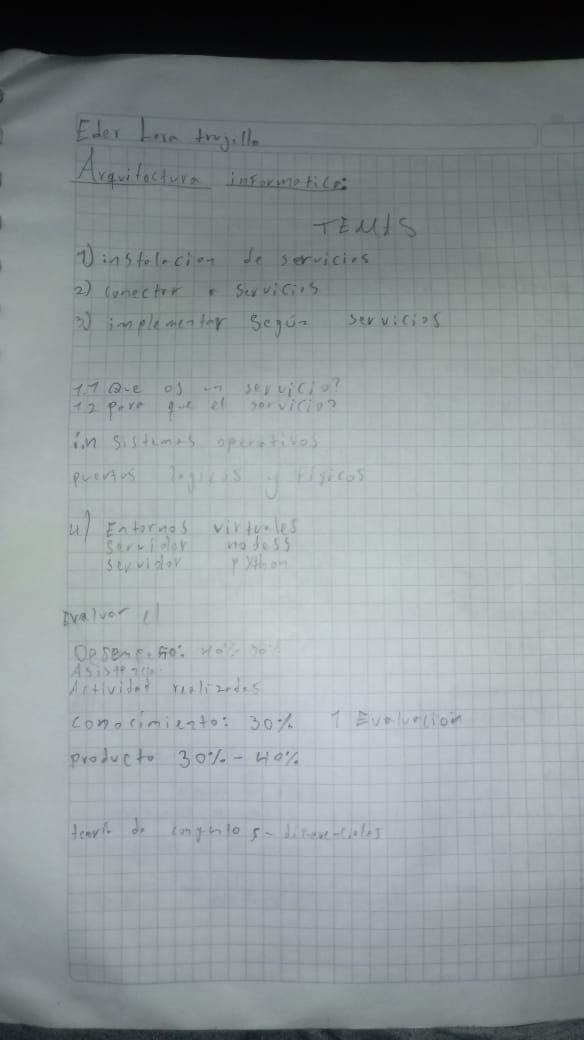 Eder Lora trujillo
Arquitectura informatica:
TEMAS
1) instalacion de servicios
2) conectar a servicios
3) implementar según servicios
1.1 Que es un servicio?
1.2 para que el servicio?
in sistemas operativos
puertos logicos y fisicos
4) Entornos virtuales
Servidor nodess
servidor python
Evaluar el
Desempeño: 40% 30%
Asistencia
Actividad realizadas
conocimiento: 30% 1 Evaluación
producto 30% - 40%
teoria de conjuntos - diferenciales